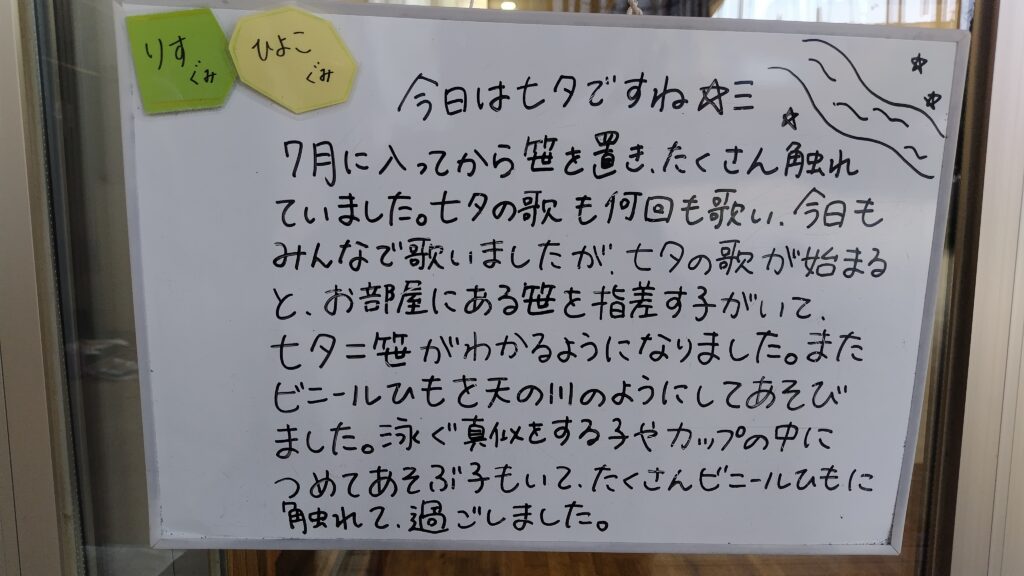 りす
ぐみ
ひよこ
ぐみ
今日は七夕ですね☆三
7月に入ってから笹を置き、たくさん触れ
ていました。七夕の歌も何回も歌い、今日も
みんなで歌いましたが、七夕の歌が始まる
と、お部屋にある笹を指差す子がいて、
七夕=笹がわかるようになりました。また
ビニールひもを天の川のようにしてあそび
ました。泳ぐ真似をする子やカップの中に
つめてあそぶ子もいて、たくさんビニールひもに
触れて、過ごしました。